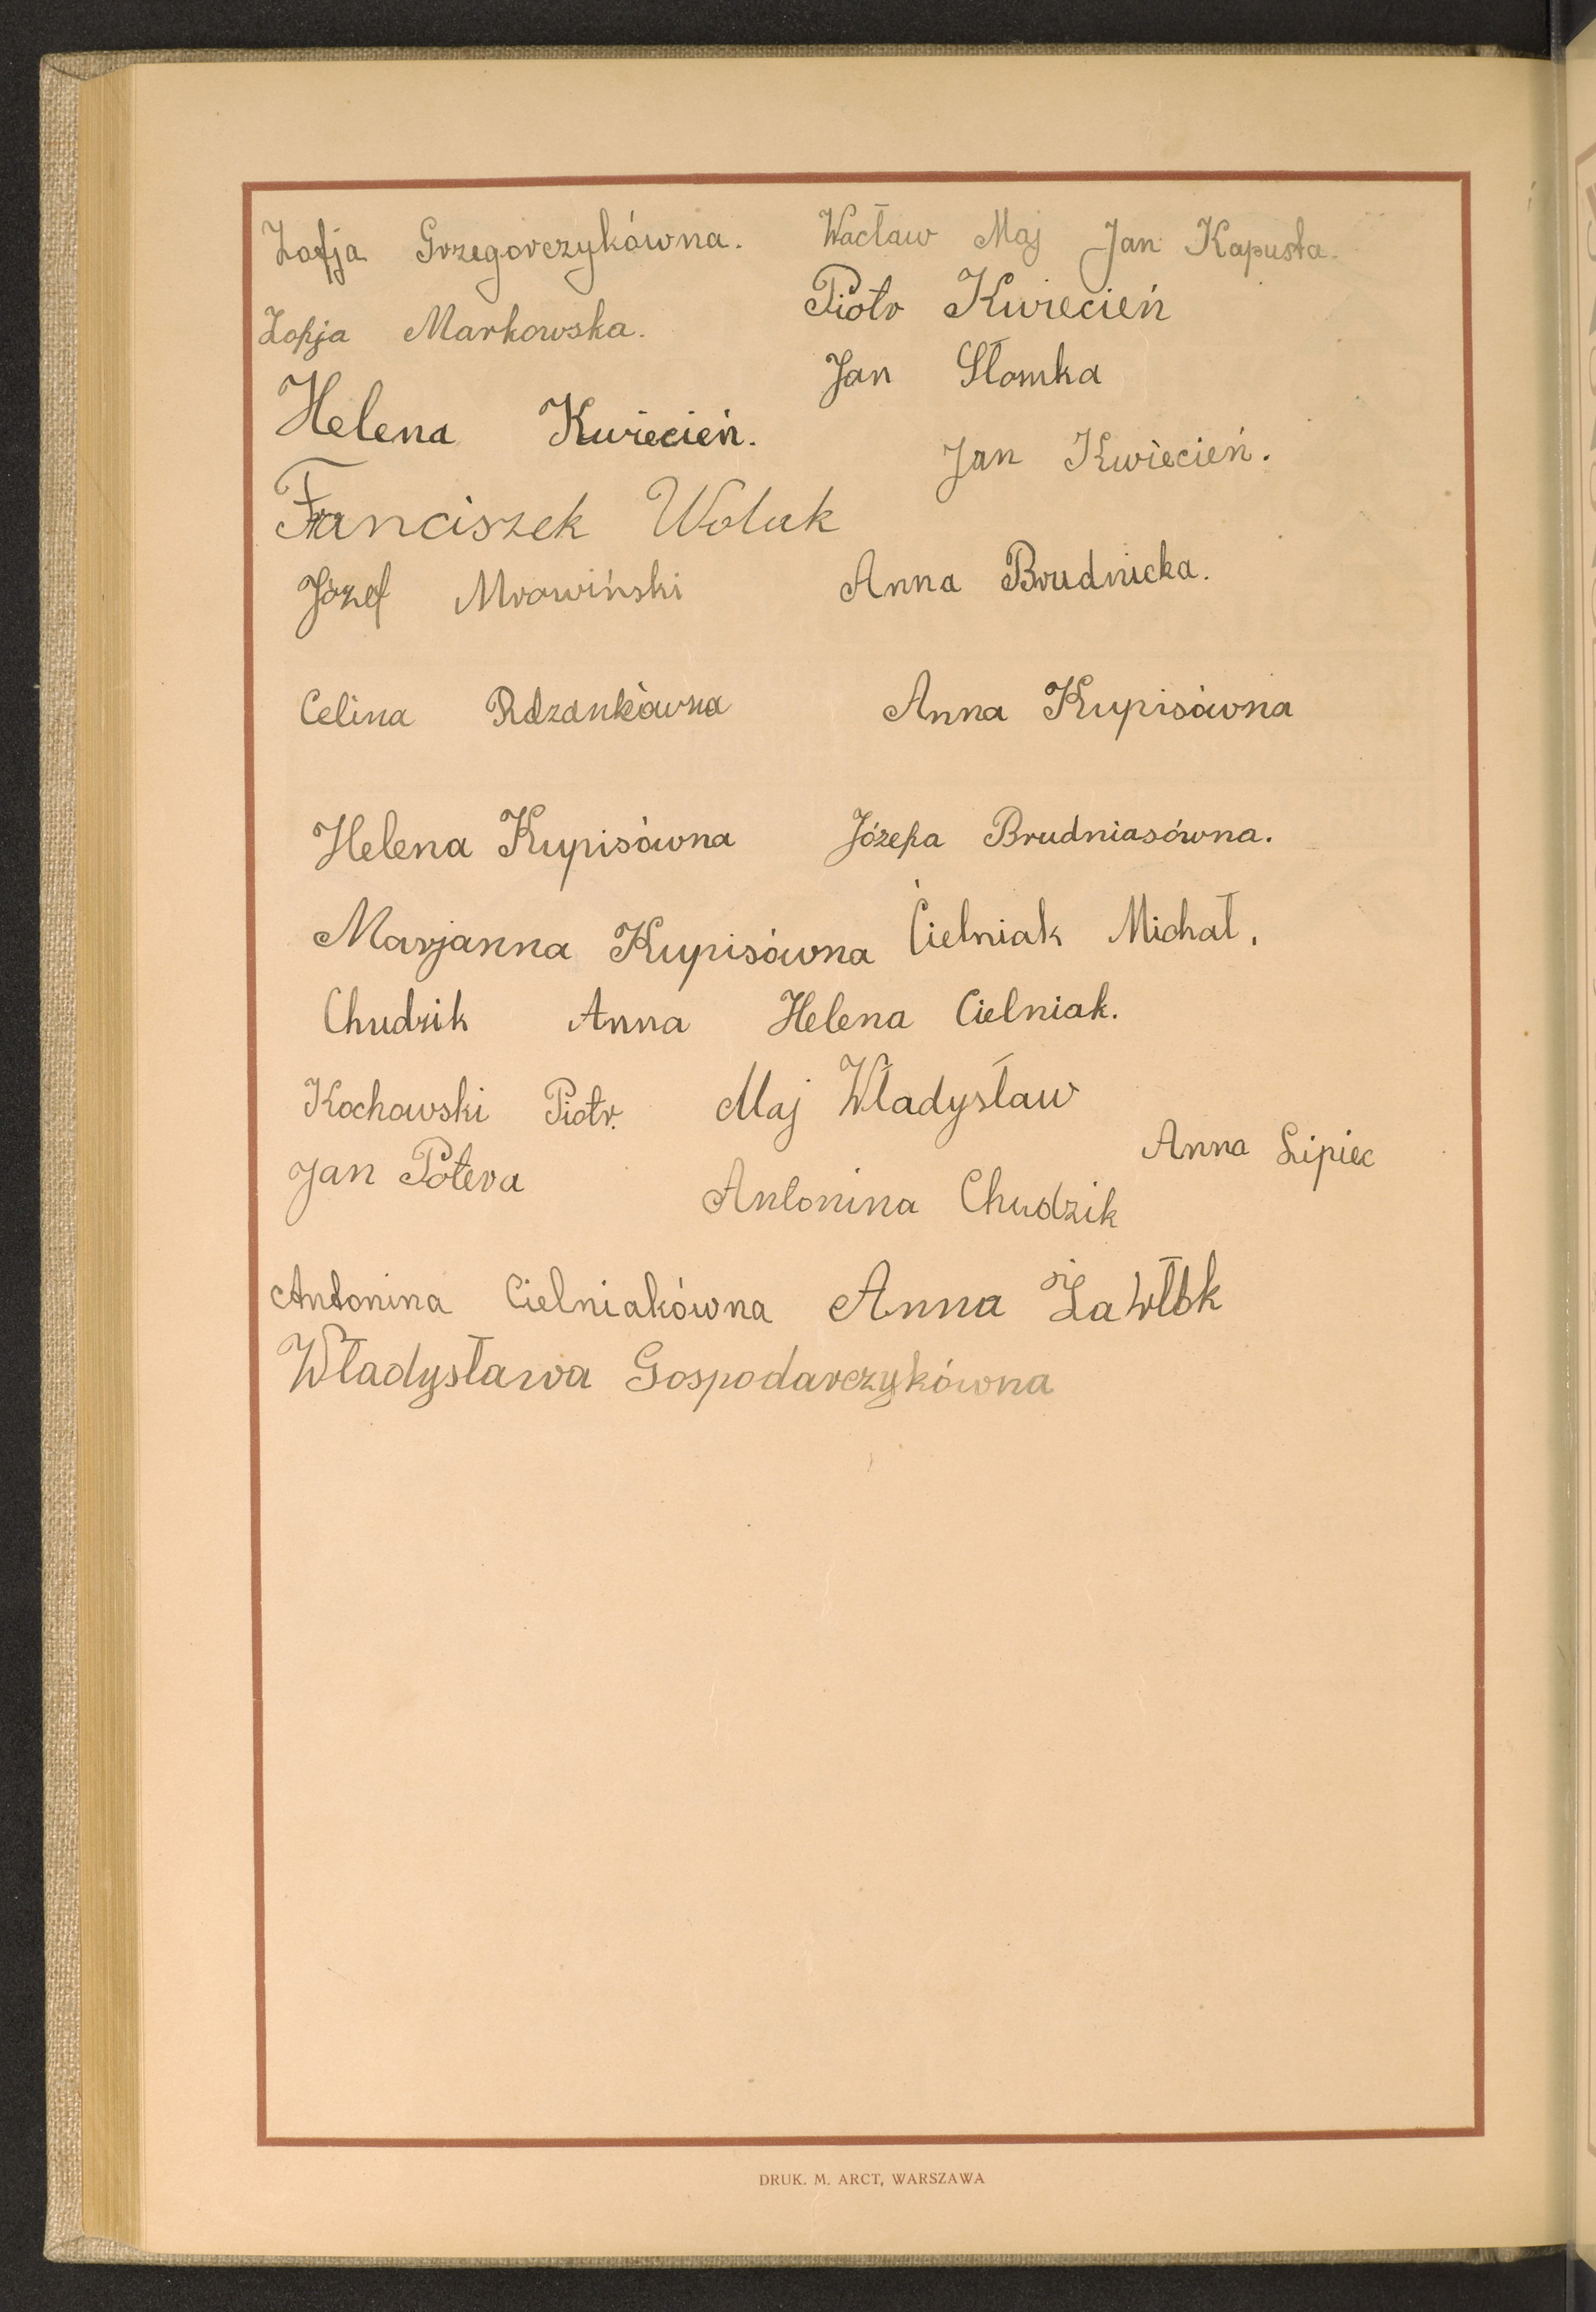 Zofja Grzegorczykówna. Wacław Maj Jan Kapusta.
Zofja Markowska. Piotr Kwiecień
Jan Słomka
Helena Kwiecień.
Jan Kwiecień.
Franciszek Woluk
Józef Mrowiński Anna Brudnicka.
Celina Rdzankówna Anna Kupisówna
Helena Kupisówna Józefa Brudniasówna.
Marjanna Kupisówna Cielniak Michał.
Chudzik Anna Helena Cielniak.
Kochowski Piotr. Maj Władysław
Anna Lipiec
Jan Potera Antonina Chudzik
Antonina Cielniakówna Anna
Władysława Gospodarczykówna
DRUK. M. ARCT, WARSZAWA